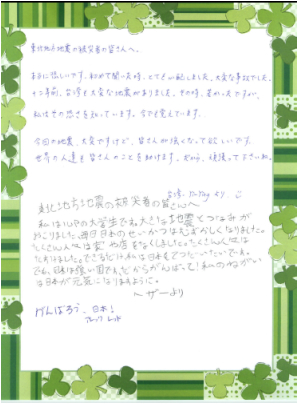 東北地方地震の被災者の皆さんへ。
本当に悲しいです。初めて聞いた時、とても心配しました。大変な事故でした。
十二年前、台湾も大変な地震がありました。その時、若かったですが、
私はその恐さを知っています。今でも覚えています。
今回の地震、大変ですけど、皆さんが強くなって欲しいです。
世界の人達も皆さんのことを助けます。だから、頑張って下さいね。
台湾、 より
東北地方地震の被災者の皆さんへ
私は の大学生です。大きな地震とつなみが
おこりました。毎日日本のせいかつはむずかしくなりました。
たくさん人々は家や店をなくしました。たくさん人々は
たおれました。できるだけ私は日本をてつだいたいです。
でも、日本は強い国です。だからがんばって！私のねがい
は日本が元気になりますように。
〜ザーより
がんばろう、日本！